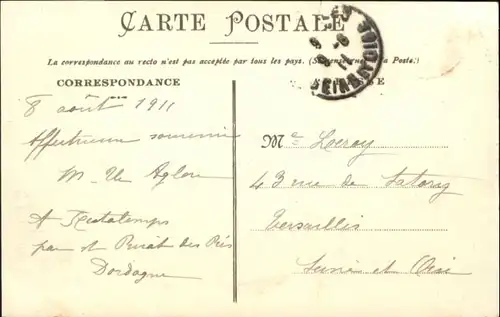 CARTE POSTALE
La correspondance au recto n'est pas acceptée par tous les pays. (Se renseigner à la Poste.)
CORRESPONDANCE
8 août 1911
Affectueux souvenir
M.
A
par St des Prés
Dordogne
SEINE-ET-OISE
Me Lecroy
43 rue de Satory
Versailles
Seine et Oise